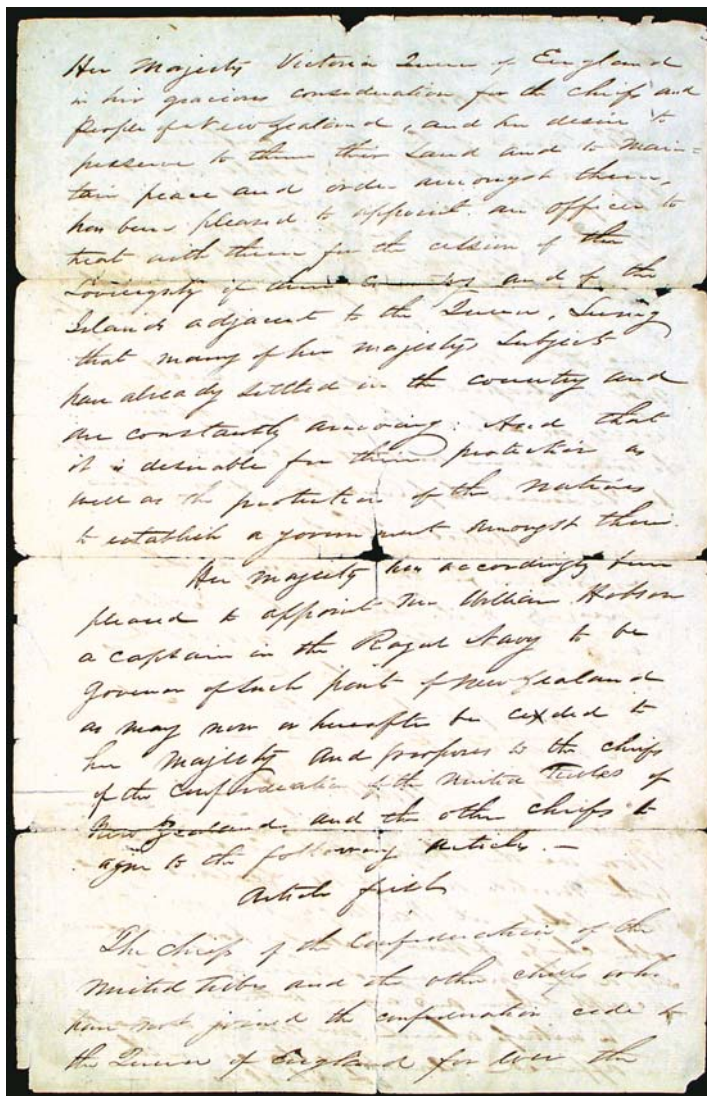 Her Majesty Victoria Queen of England
in her gracious consideration for the chiefs and
People of New Zealand, and her desire to
preserve to them their Land and to main=
tain peace and order amongst them,
has been pleased to appoint an officer to
treat with them for the cession of the
Sovreignty of their and of the
Islands adjacent to the Queen. Seeing
that many of her majestys Subjects
have already settled in the country and
are constantly arriving: And that
it is desirable for their protection as
well as the protection of the natives
to establish a government amongst them.
Her majesty has accordingly been
pleased to appoint Mr. William Hobson
a captain in the Royal Navy to be
Governor of such part of New Zealand
as may now or hereafter be ceded to
her Majesty and proposes to the chiefs
of the confederation of the United Tribes of
New Zealand and the other chiefs to
agree to the following articles. —
Article first
The chiefs of the Confederation of the
United Tribes and the other chiefs who
have not joined the confederation cede to
the Queen of England for ever the